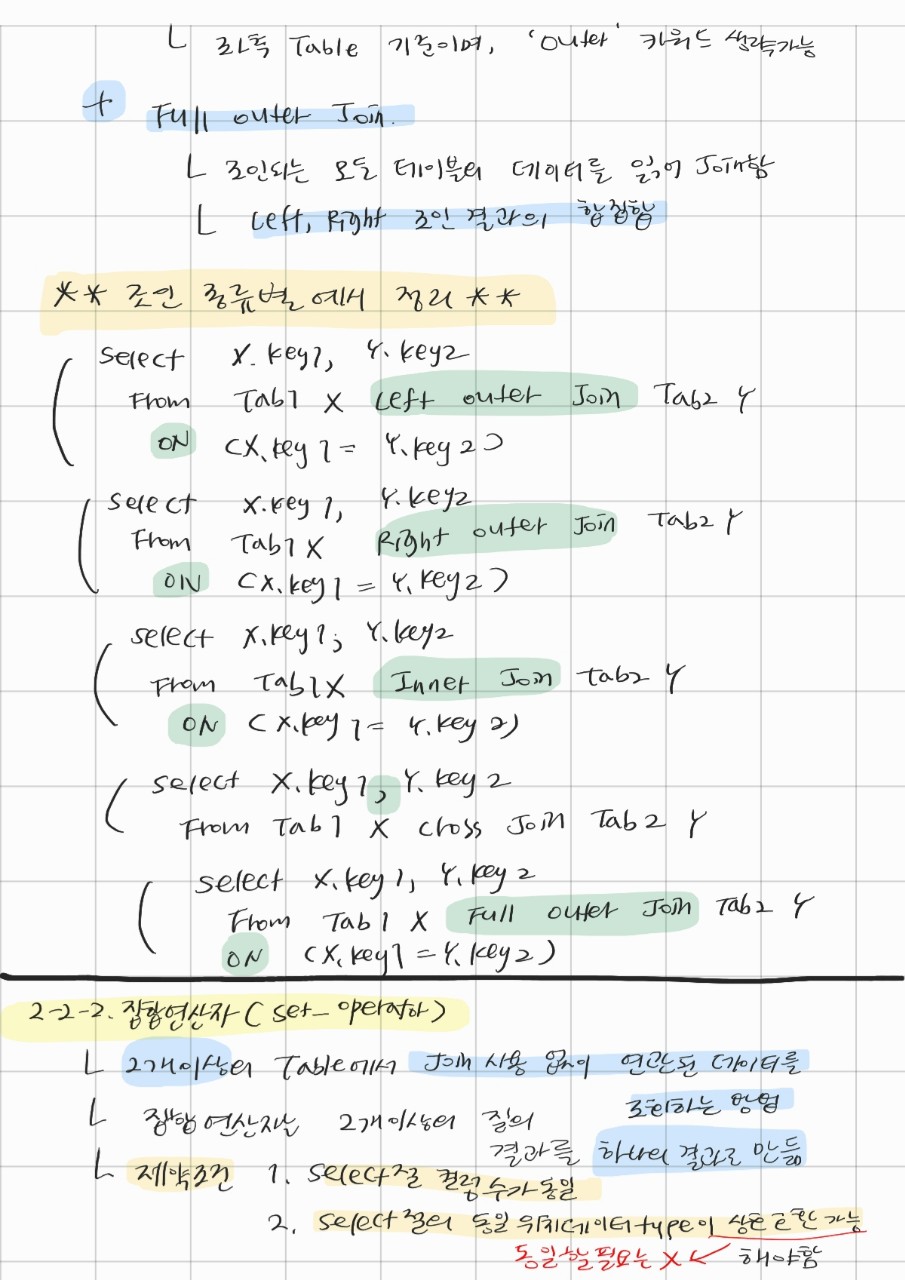 └ 좌측 Table 기준이며, 'outer' 키워드 생략가능
+ Full outer Join.
└ 조인되는 모든 테이블의 데이터를 읽어 Join함
└ Left, Right 조인 결과의 합집합
** 조인 종류별 예시 정리 **
select X.key1, Y.key2
From Tab1 X Left outer Join Tab2 Y
ON (X.key1 = Y.key2)
select X.key1, Y.key2
From Tab1 X Right outer Join Tab2 Y
ON (X.key1 = Y.key2)
select X.key1, Y.key2
From Tab1 X Inner Join Tab2 Y
ON (X.key1 = Y.key2)
select X.key1, Y.key2
From Tab1 X cross Join Tab2 Y
select X.key1, Y.key2
From Tab1 X Full outer Join Tab2 Y
ON (X.key1 = Y.key2)
2-2-2. 집합연산자 (set_operator)
└ 2개이상의 Table에서 Join 사용 없이 연관된 데이터를
조회하는 방법
└ 집합 연산자는 2개이상의 질의
결과를 하나의 결과로 만듦
└ 제약조건 1. select절 컬럼 수가 동일
2. select절의 동일 위치 데이터 type이 상호 호환 가능
동일할 필요는 X ↙ 해야함